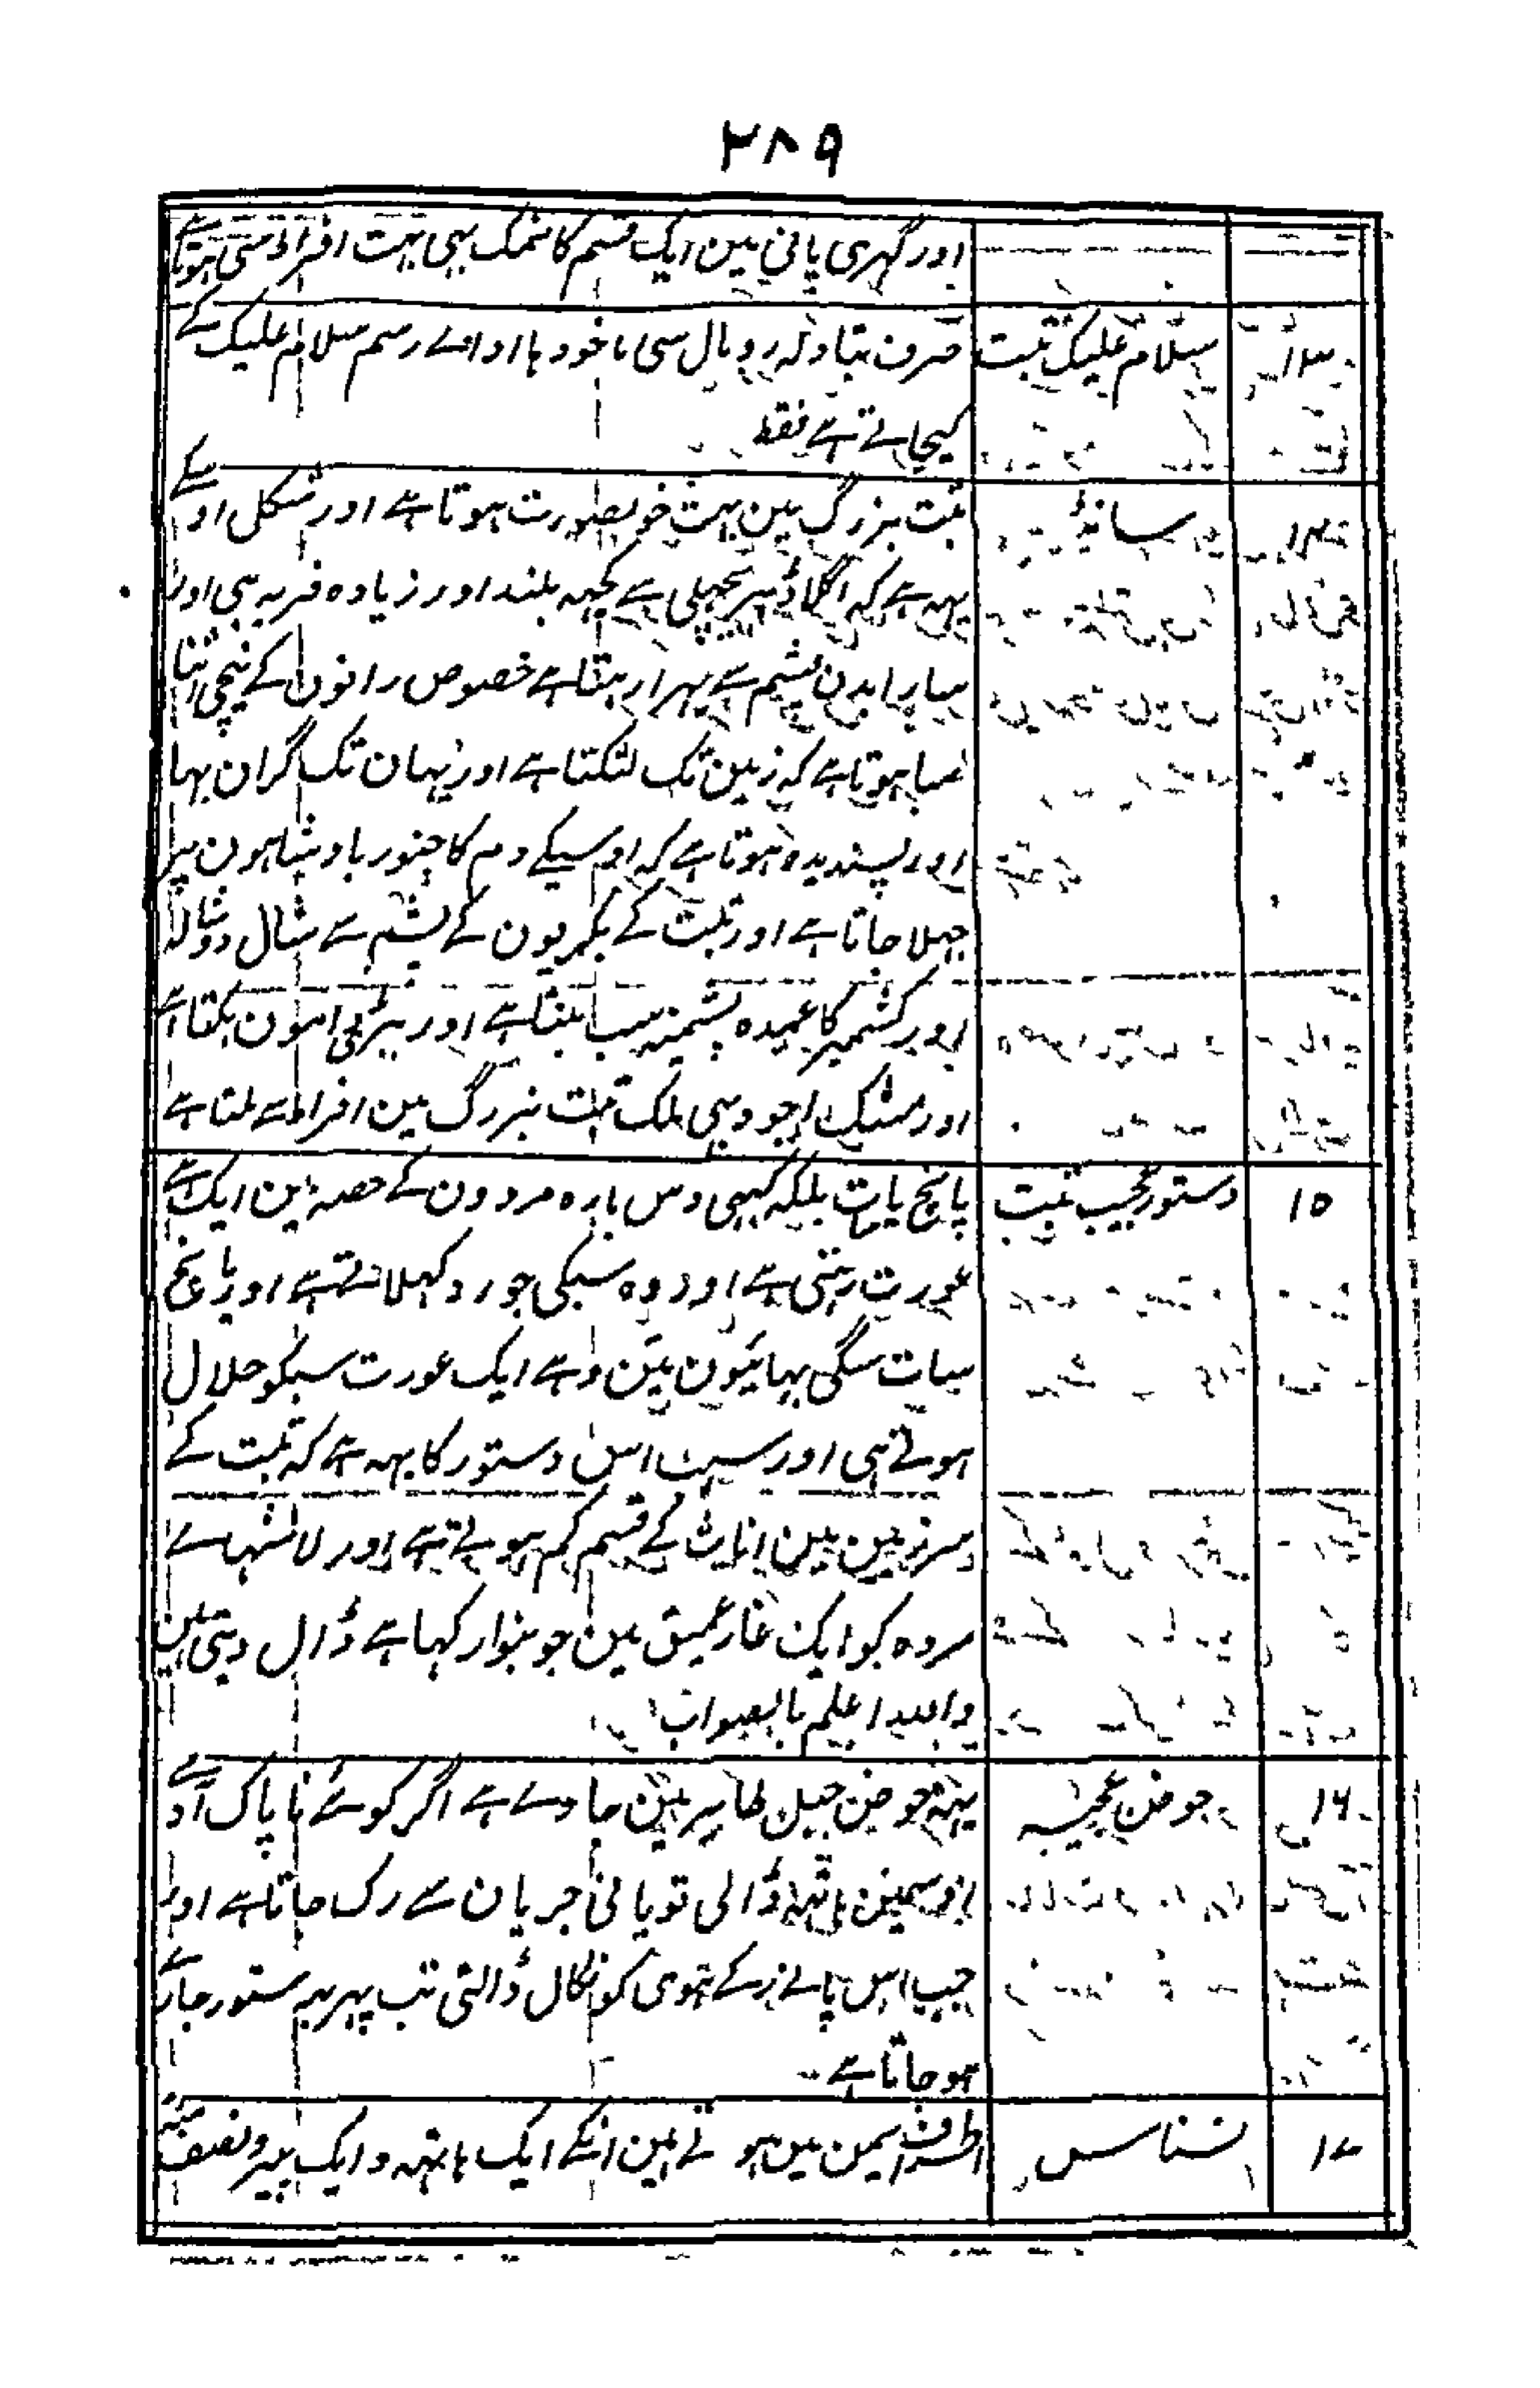 ۲۸۹
اور گہری پانی مین ایک قسم کا نمک بہی بہت افراط سی ہوتا ہے
۱۳ سلام علیک تبت صرف تبادلہ رومال سی ماخود ہا ادا اے رسم سلام علیک کے
کیجاتے ہے فقط
۱۴ سانڈ تبت بزرگ مین بہت خوبصورت ہوتا ہے اور شکل اوسکے
یہہ ہے کہ اگلا دہڑ پچہلی سے کچہہ بلند اور زیادہ فربہ ہی اور
سارا بدن پشم سے بہرا رہتا ہے خصوص رانون کے نیچی اتنا
لنبا ہوتا ہے کہ زمین تک لٹکتا ہے اور یہان تک گران بہا
اور پسندیدہ ہوتا ہے کہ اوسیکے دم کا چنور بادشاہون پر
جہلا جاتا ہے اور تبت کے بکریون کے پشم سے شال دوشالہ
اور کشمیر کا عمدہ پشمینہ سب بنتا ہے اور بڑی دامون بکتا ہے
اور مشک اجود بہی ملک تبت بزرگ مین افراط سے ملتا ہے
۱۵ دستور عجیب تبت پانچ یا سات بلکہ کبہی دس بارہ مردون کے حصہ مین ایک ہے
عورت رہتی ہے اور وہ سبکی جورو کہلاتے ہے اور پانچ
سات سگی بہائیون مین وہے ایک عورت سبکو حلال
ہوتے ہی اور سبب اس دستور کا یہہ ہے کہ تبت کے
سرزمین مین اناث کے قسم کم ہوتے ہے اور لاشہاے
مردہ کو ایک غار عمیق مین جو بنوا رکہا ہے ڈال دیتی ہین
واللہ اعلم بالصواب
۱۶ حوض عجیبہ یہہ حوض جبل طاہر مین جاوے ہے اگر کوئے ناپاک آدمے
اوسمین ہاتہہ ڈالی تو پانی جریان سے رک جاتا ہے اور
جب اس پانے کو نکال ڈالتی تب پہر بدستور جاری
ہو جاتا ہے
۱۷ نسناس اطراف یمن مین ہوتے ہین انکے ایک ہاتہہ و ایک پیر و نصف